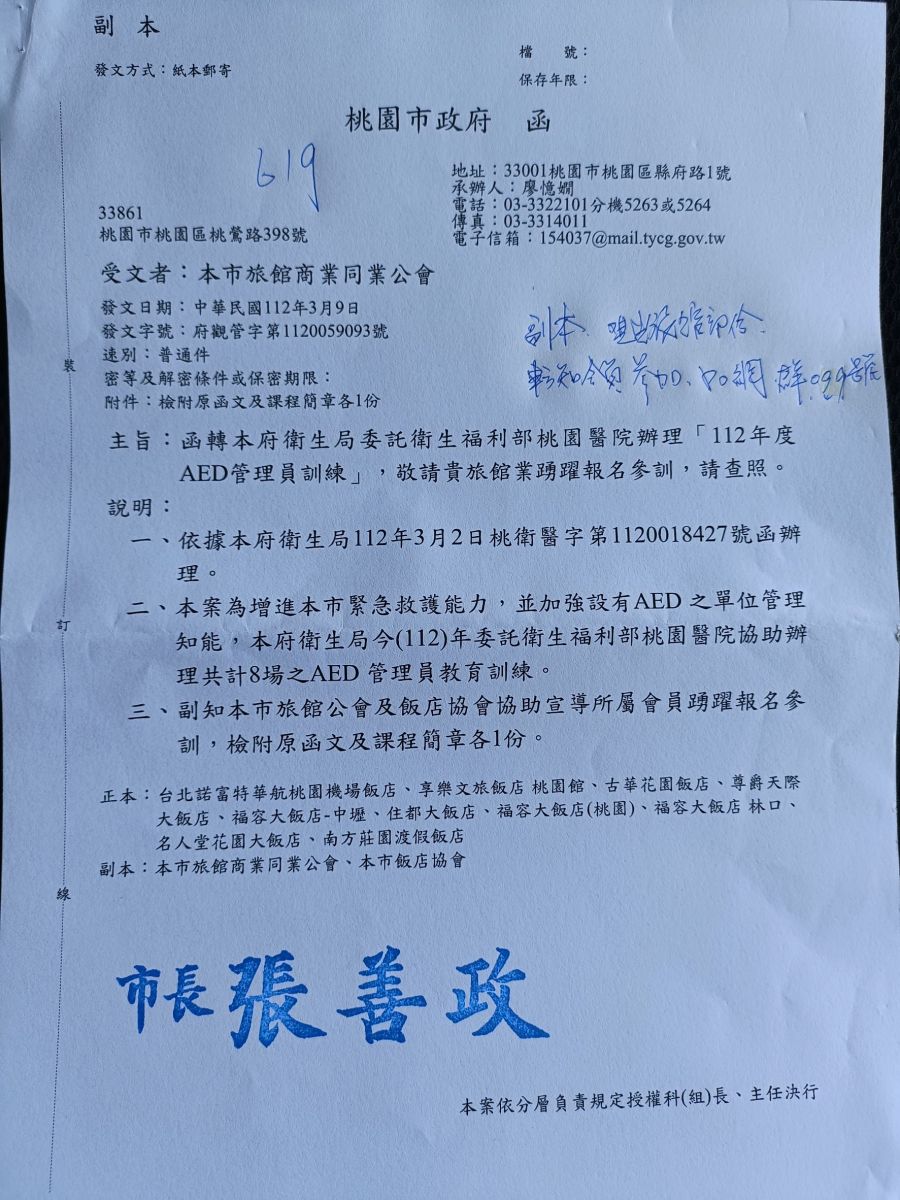 副 本
發文方式：紙本郵寄
檔 號：
保存年限：
桃園市政府 函
619
地址：33001桃園市桃園區縣府路1號
承辦人：廖憶嫺
電話：03-3322101分機5263或5264
傳真：03-3314011
電子信箱：154037@mail.tycg.gov.tw
33861
桃園市桃園區桃鶯路398號
受文者：本市旅館商業同業公會
發文日期：中華民國112年3月9日
發文字號：府觀管字第1120059093號
速別：普通件
密等及解密條件或保密期限：
附件：檢附原函文及課程簡章各1份
副本
轉知 參加
主旨：函轉本府衛生局委託衛生福利部桃園醫院辦理「112年度
AED管理員訓練」，敬請貴旅館業踴躍報名參訓，請查照。
說明：
一、依據本府衛生局112年3月2日桃衛醫字第1120018427號函辦
理。
二、本案為增進本市緊急救護能力，並加強設有AED 之單位管理
知能，本府衛生局今(112)年委託衛生福利部桃園醫院協助辦
理共計8場之AED 管理員教育訓練。
三、副知本市旅館公會及飯店協會協助宣導所屬會員踴躍報名參
訓，檢附原函文及課程簡章各1份。
正本：台北諾富特華航桃園機場飯店、享樂文旅飯店 桃園館、古華花園飯店、尊爵天際
大飯店、福容大飯店-中壢、住都大飯店、福容大飯店(桃園)、福容大飯店 林口、
名人堂花園大飯店、南方莊園渡假飯店
副本：本市旅館商業同業公會、本市飯店協會
裝
訂
線
市長張善政
本案依分層負責規定授權科(組)長、主任決行